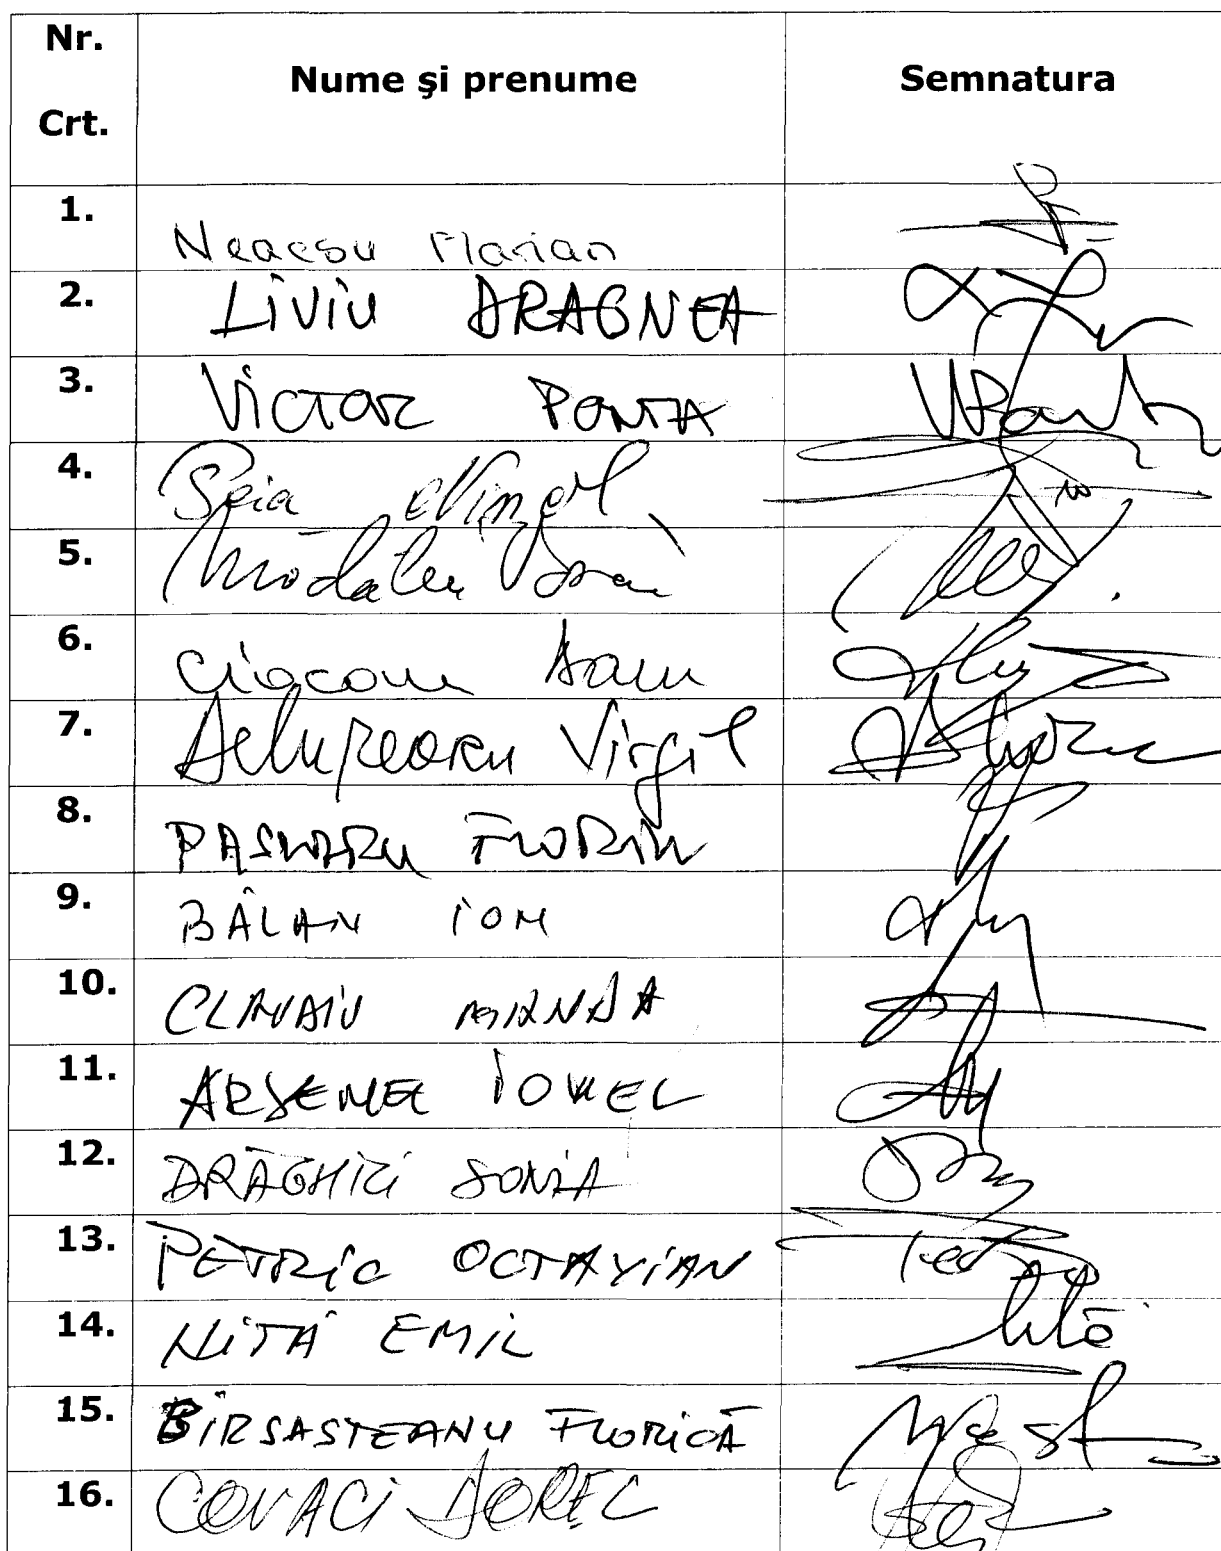 Nr. Crt. Nume şi prenume Semnatura
1. Neacsu Marian
2. LIVIU DRAGNEA
3. VICTOR PONTA
4. Ninel
5. Mădălin Voicu
6. Ciocan Dan
7. Delureanu Virgil
8. PASLARU FLORIN
9. BĂLAN ION
10. CLAUDIU MANDA
11. ARSENE IONEL
12. DRĂGHICI SONIA
13. PETRIC OCTAVIAN
14. NIȚĂ EMIL
15. BÎRSASTEANU FLORICĂ
16. COVACI DOREL